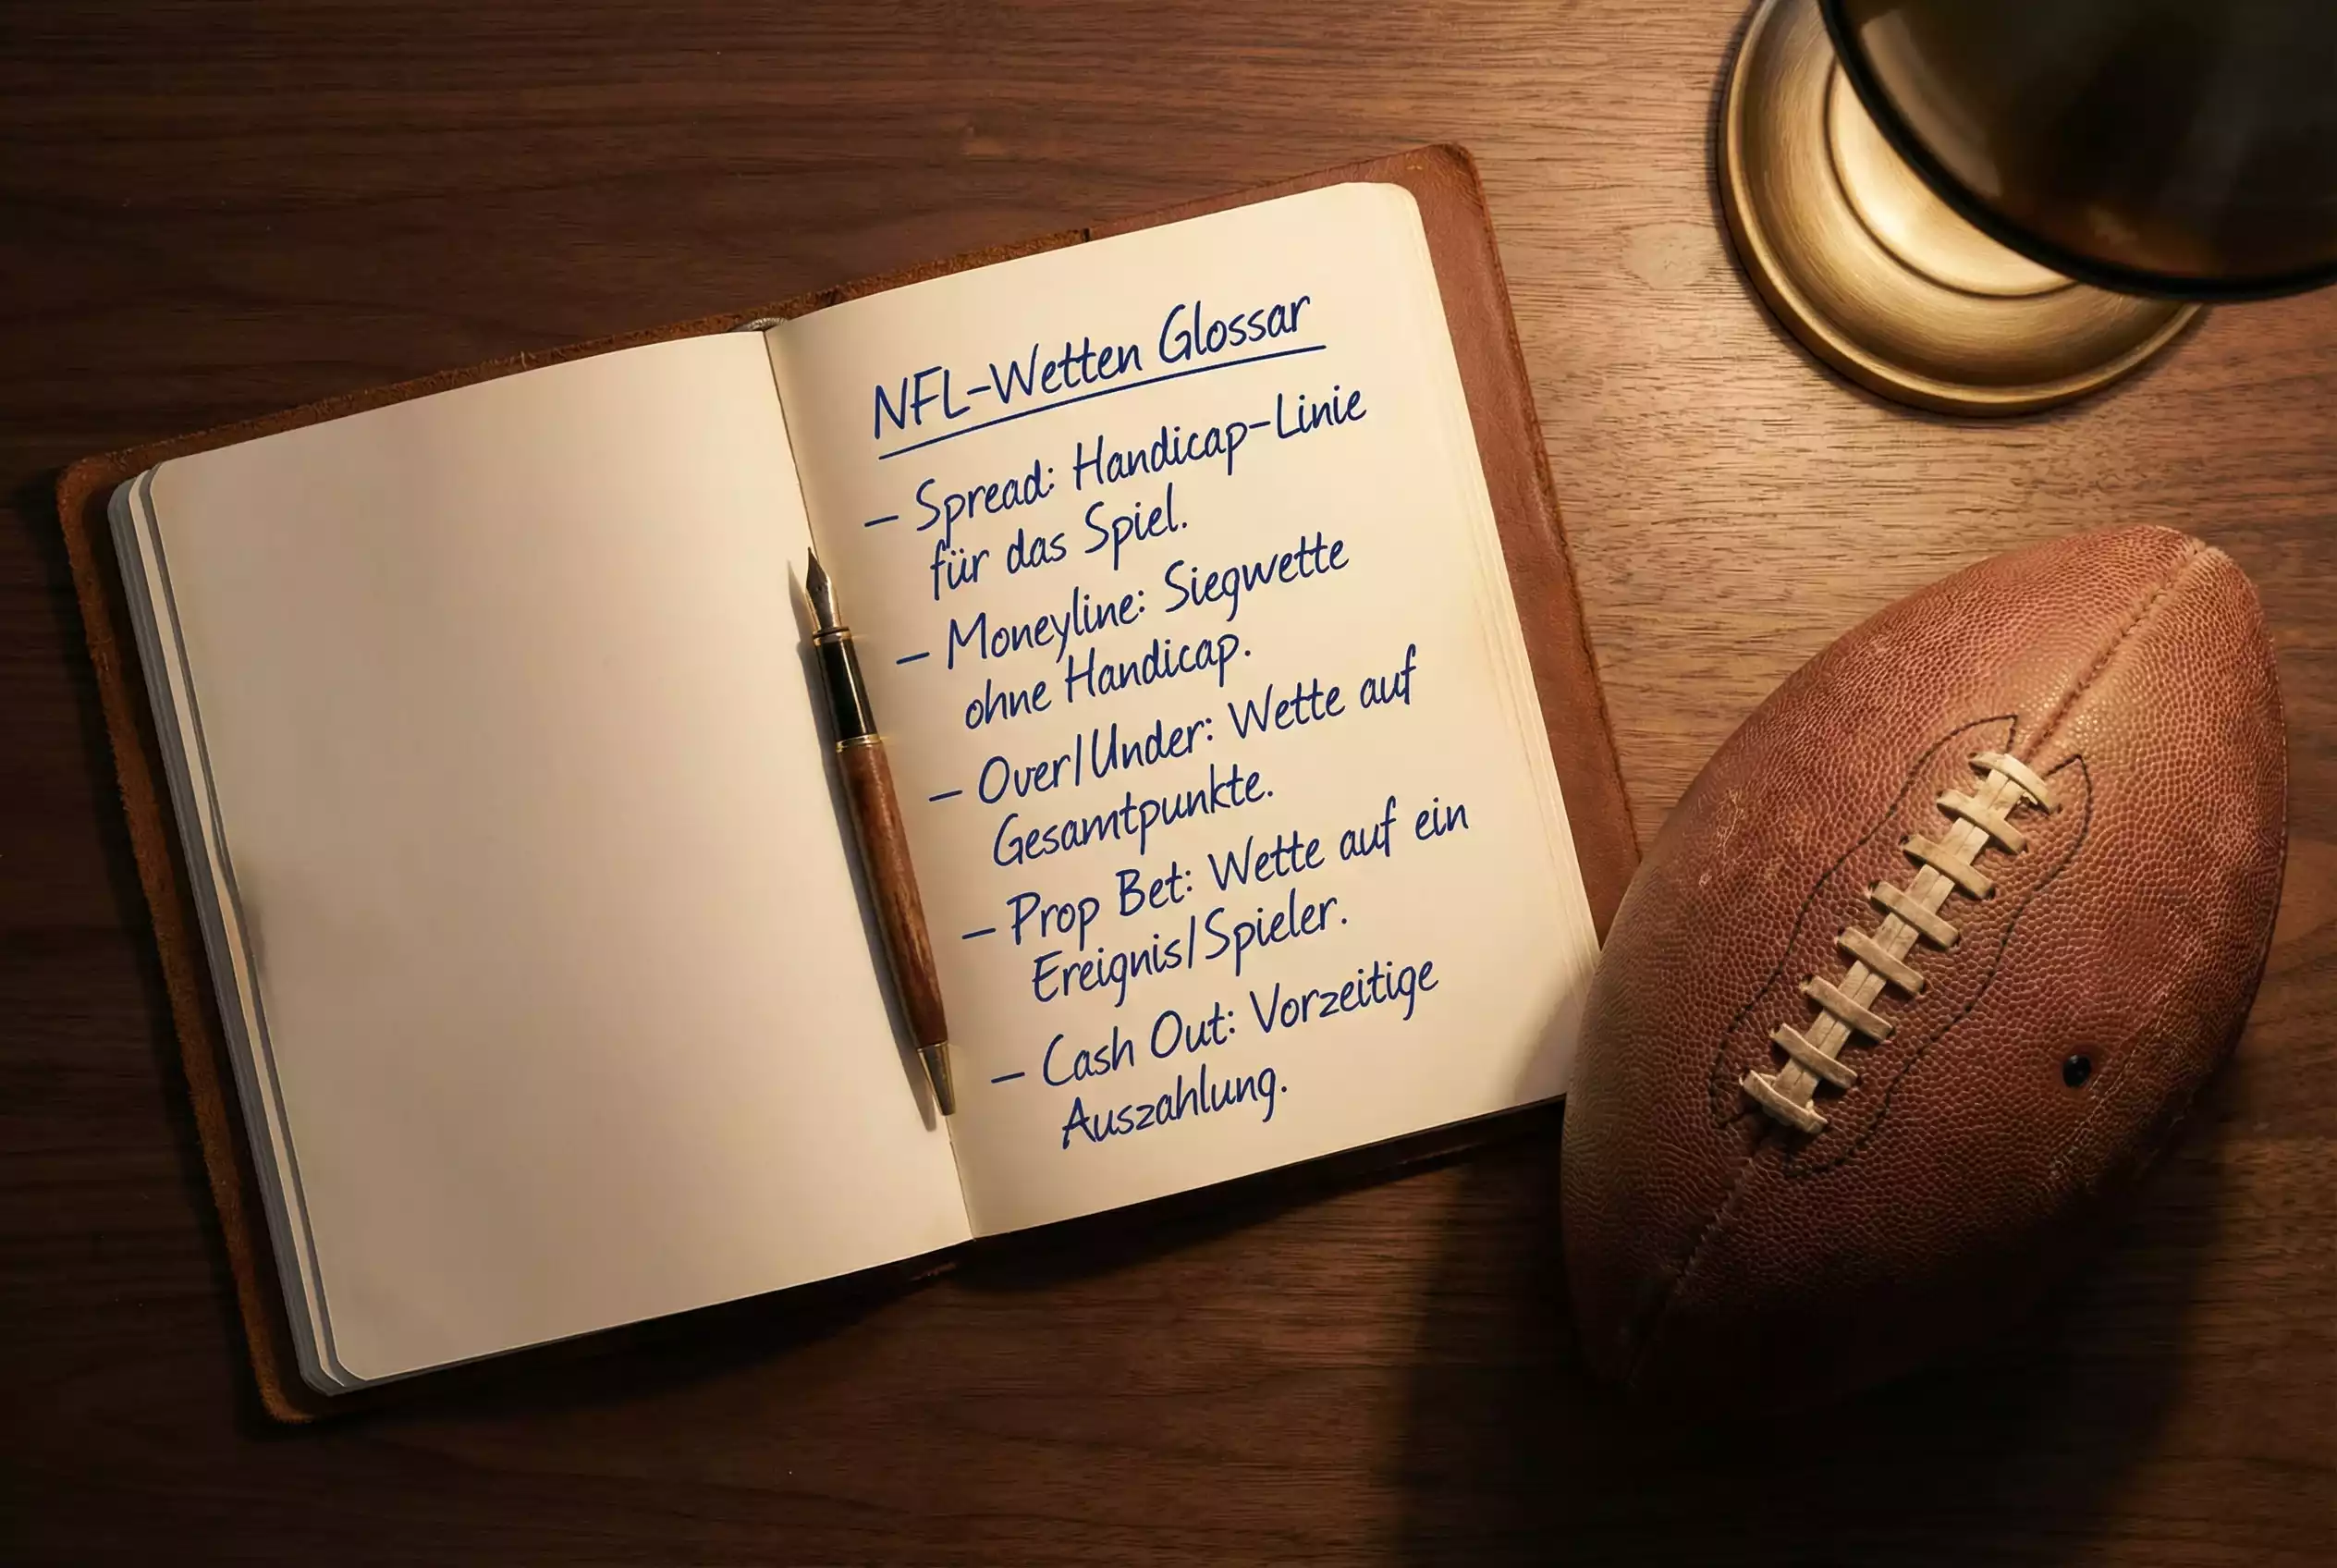 NFL-Wetten Glossar
– Spread: Handicap-Linie
für das Spiel.
– Moneyline: Siegwette
ohne Handicap.
– Over/Under: Wette auf
Gesamtpunkte.
– Prop Bet: Wette auf ein
Ereignis/Spieler.
– Cash Out: Vorzeitige
Auszahlung.